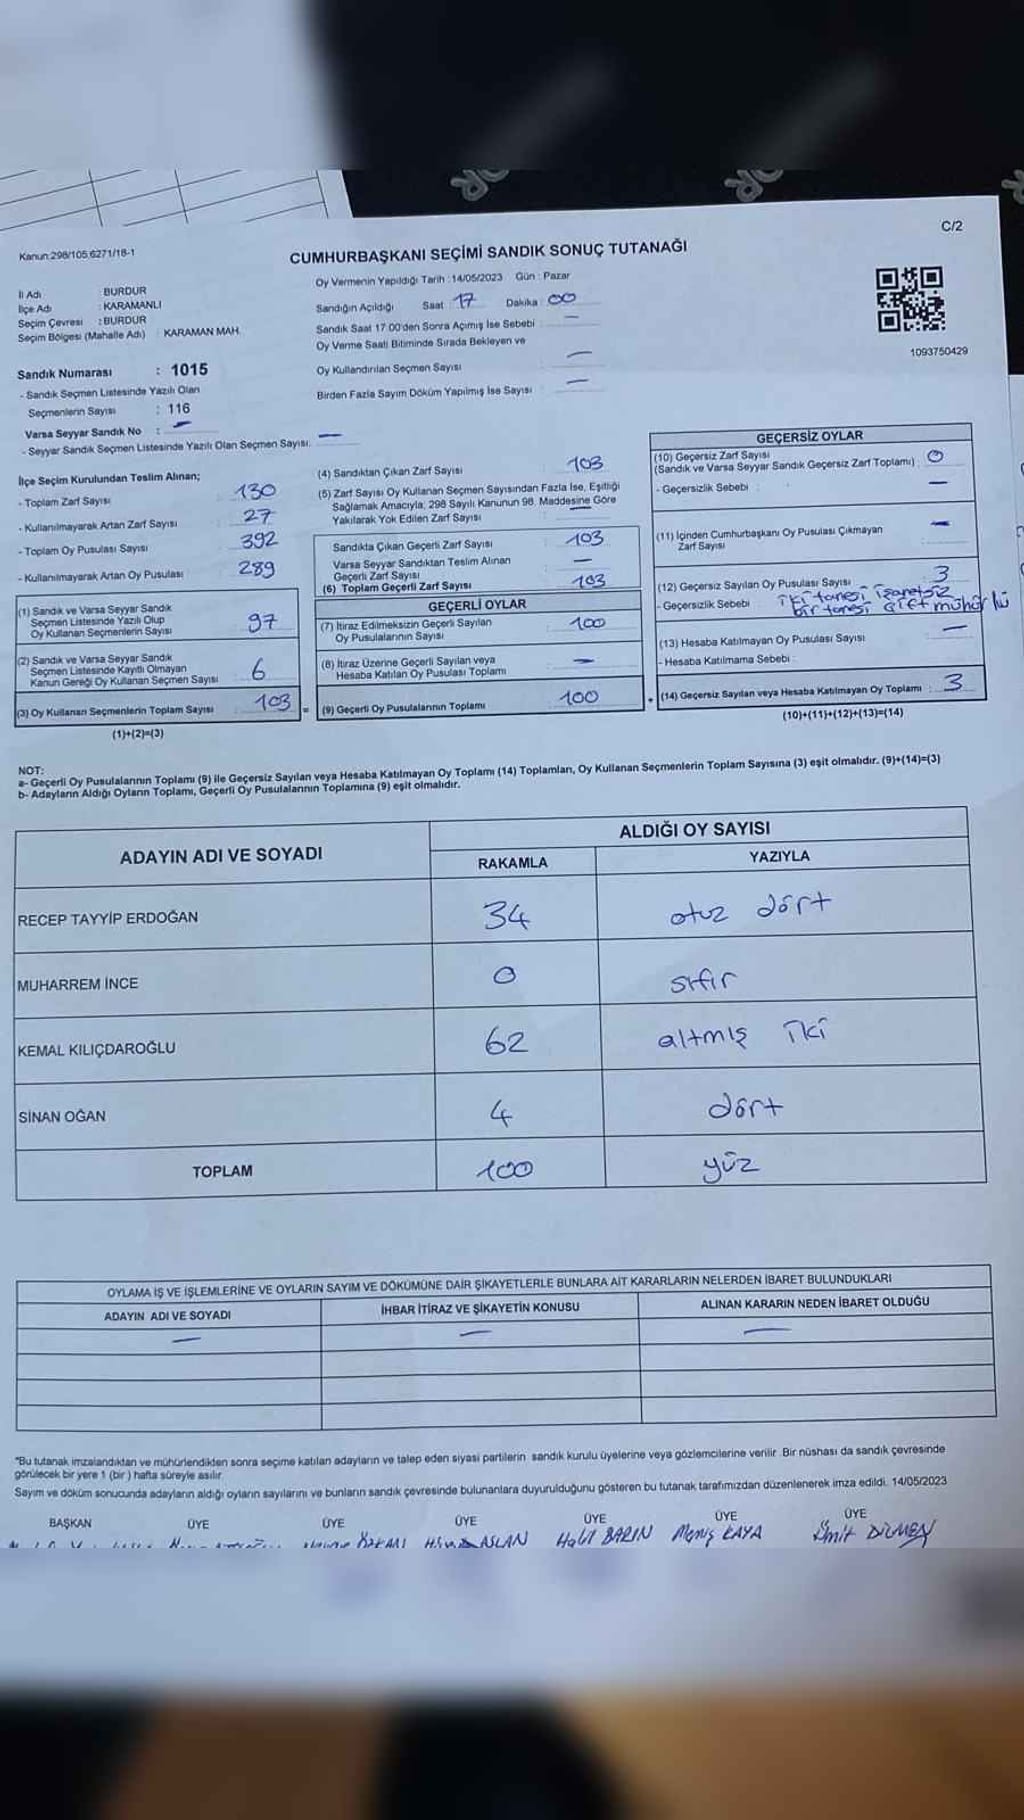 C/2
Kanun:298/105;6271/18-1
CUMHURBAŞKANI SEÇİMİ SANDIK SONUÇ TUTANAĞI
Oy Vermenin Yapıldığı Tarih : 14/05/2023 Gün : Pazar
İl Adı : BURDUR
İlçe Adı : KARAMANLI
Seçim Çevresi : BURDUR
Seçim Bölgesi (Mahalle Adı) : KARAMAN MAH.
Sandığın Açıldığı Saat 17 Dakika : 00
Sandık Saat 17.00'den Sonra Açımış İse Sebebi : —
Oy Verme Saati Bitiminde Sırada Bekleyen ve
Oy Kullandırılan Seçmen Sayısı —
Birden Fazla Sayım Döküm Yapılmış İse Sayısı —
1093750429
Sandık Numarası : 1015
- Sandık Seçmen Listesinde Yazılı Olan
Seçmenlerin Sayısı : 116
Varsa Seyyar Sandık No : —
- Seyyar Sandık Seçmen Listesinde Yazılı Olan Seçmen Sayısı: —
İlçe Seçim Kurulundan Teslim Alınan;
- Toplam Zarf Sayısı 130
- Kullanılmayarak Artan Zarf Sayısı 27
- Toplam Oy Pusulası Sayısı 392
- Kullanılmayarak Artan Oy Pusulası 289
(1) Sandık ve Varsa Seyyar Sandık
Seçmen Listesinde Yazılı Olup
Oy Kullanan Seçmenlerin Sayısı 97
(2) Sandık ve Varsa Seyyar Sandık
Seçmen Listesinde Kayıtlı Olmayan
Kanun Gereği Oy Kullanan Seçmen Sayısı 6
(3) Oy Kullanan Seçmenlerin Toplam Sayısı 103 =
(1)+(2)=(3)
(4) Sandıktan Çıkan Zarf Sayısı 103
(5) Zarf Sayısı Oy Kullanan Seçmen Sayısından Fazla İse, Eşitliği
Sağlamak Amacıyla; 298 Sayılı Kanunun 98. Maddesine Göre
Yakılarak Yok Edilen Zarf Sayısı : —
Sandıkta Çıkan Geçerli Zarf Sayısı : 103
Varsa Seyyar Sandıktan Teslim Alınan
Geçerli Zarf Sayısı —
(6) Toplam Geçerli Zarf Sayısı 103
GEÇERLİ OYLAR
(7) İtiraz Edilmeksizin Geçerli Sayılan
Oy Pusulalarının Sayısı 100
(8) İtiraz Üzerine Geçerli Sayılan veya
Hesaba Katılan Oy Pusulası Toplamı —
(9) Geçerli Oy Pusulalarının Toplamı 100 +
GEÇERSİZ OYLAR
(10) Geçersiz Zarf Sayısı
(Sandık ve Varsa Seyyar Sandık Geçersiz Zarf Toplamı) : 0
- Geçersizlik Sebebi : —
(11) İçinden Cumhurbaşkanı Oy Pusulası Çıkmayan
Zarf Sayısı —
(12) Geçersiz Sayılan Oy Pusulası Sayısı 3
- Geçersizlik Sebebi : iki tanesi işaretsiz
bir tanesi çift mühürlü
(13) Hesaba Katılmayan Oy Pusulası Sayısı —
- Hesaba Katılmama Sebebi :
(14) Geçersiz Sayılan veya Hesaba Katılmayan Oy Toplamı : 3
(10)+(11)+(12)+(13)=(14)
NOT:
a- Geçerli Oy Pusulalarının Toplamı (9) ile Geçersiz Sayılan veya Hesaba Katılmayan Oy Toplamı (14) Toplamları, Oy Kullanan Seçmenlerin Toplam Sayısına (3) eşit olmalıdır. (9)+(14)=(3)
b- Adayların Aldığı Oyların Toplamı, Geçerli Oy Pusulalarının Toplamına (9) eşit olmalıdır.
ADAYIN ADI VE SOYADI
ALDIĞI OY SAYISI
RAKAMLA YAZIYLA
RECEP TAYYİP ERDOĞAN 34 otuz dört
MUHARREM İNCE 0 sıfır
KEMAL KILIÇDAROĞLU 62 altmış iki
SİNAN OĞAN 4 dört
TOPLAM 100 yüz
OYLAMA İŞ VE İŞLEMLERİNE VE OYLARIN SAYIM VE DÖKÜMÜNE DAİR ŞİKAYETLERLE BUNLARA AİT KARARLARIN NELERDEN İBARET BULUNDUKLARI
ADAYIN ADI VE SOYADI İHBAR İTİRAZ VE ŞİKAYETİN KONUSU ALINAN KARARIN NEDEN İBARET OLDUĞU
— — —
*Bu tutanak imzalandıktan ve mühürlendikten sonra seçime katılan adayların ve talep eden siyasi partilerin sandık kurulu üyelerine veya gözlemcilerine verilir. Bir nüshası da sandık çevresinde
görülecek bir yere 1 (bir) hafta süreyle asılır.
Sayım ve döküm sonucunda adayların aldığı oyların sayılarını ve bunların sandık çevresinde bulunanlara duyurulduğunu gösteren bu tutanak tarafımızdan düzenlenerek imza edildi. 14/05/2023
BAŞKAN ÜYE ÜYE ÜYE ÜYE ÜYE ÜYE
ASLAN Halil BARIN Memiş KAYA Ümit DİKMEN